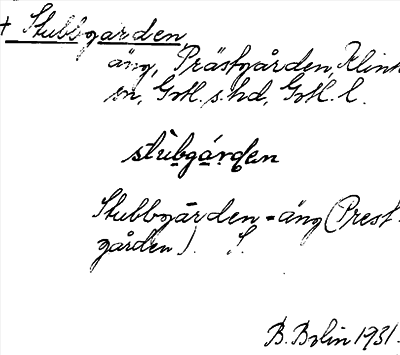 + Stubbgarden
äng, Prästgården, Klinte
sn, Gotl. s. hd, Gotl. l.
stùbgárden
Stubbgården = äng (Prest-
gården). S.
B. Bolin 1931.